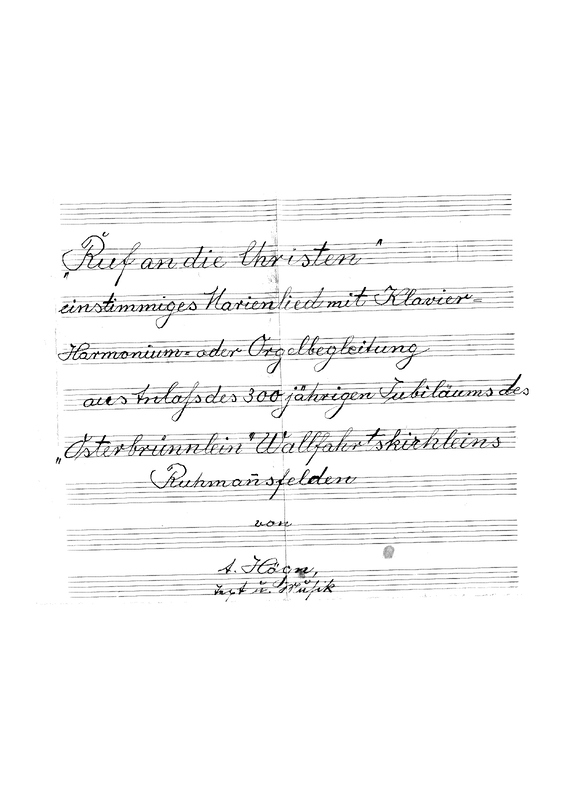 „Ruf an die Christen"
einstimmiges Marienlied mit Klavier=
Harmonium= oder Orgelbegleitung
aus Anlaſs des 300 jährigen Jubiläums des
„Osterbrünnlein" Wallfahrtskirchleins
Ruhman̄sfelden
von
A. Högn,
Text u. Muſik